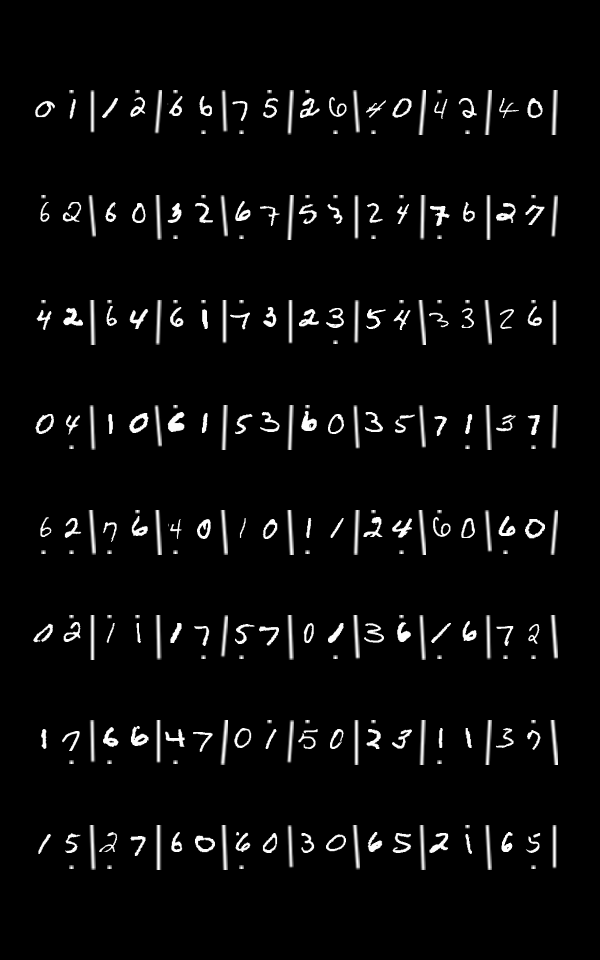 0 1̇ | 1 2̇ | 6̇ 6̣ | 7̣ 5̇ | 2̇ 6̣ | 4̣ 0 | 4̇ 2̣ | 4 0 |
6̇ 2 | 6 0 | 3̣ 2̇ | 6̣ 7 | 5̇ 3̇ | 2̣ 4̇ | 7̣ 6 | 2 7̇ |
4̇ 2 | 6̇ 4 | 6̇ 1 | 7 3̇ | 2 3̣ | 5 4̇ | 3̇ 3̇ | 2 6̇ |
0 4̣ | 1 0 | 6̇ 1 | 5 3 | 6̇ 0 | 3 5 | 7 1̣ | 3 7̣ |
6̣ 2̣ | 7̣ 6̇ | 4̣ 0 | 1 0 | 1̣ 1 | 2̇ 4̣ | 6̇ 0 | 6̣ 0 |
0 2̇ | 1̇ 1̇ | 1 7̣ | 5̣ 7 | 0 1̣ | 3 6̇ | 1̣ 6 | 7̣ 2̣ |
1 7̣ | 6̣ 6 | 4̣ 7 | 0 1̇ | 5̇ 0 | 2̇ 3 | 1̣ 1 | 3 7̇ |
1 5̣ | 2̣ 7 | 6 0 | 6̣ 0 | 3 0 | 6 5 | 2 1̇ | 6 5̣ |